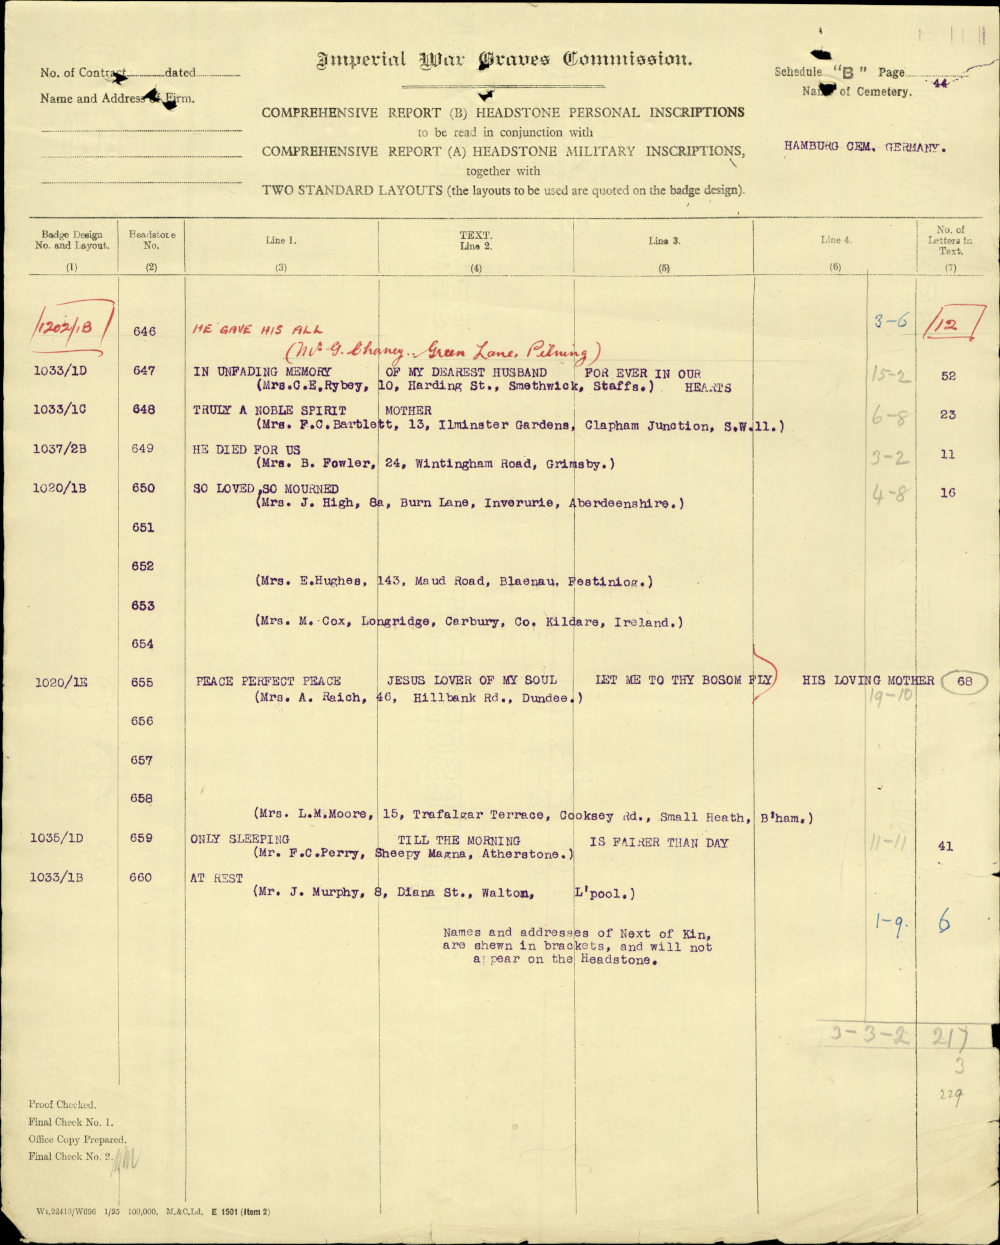 Imperial War Graves Commission.
No. of Contract dated
Name and Address of Firm.
Schedule "B" Page 44
Name of Cemetery.
HAMBURG CEM. GERMANY.
COMPREHENSIVE REPORT (B) HEADSTONE PERSONAL INSCRIPTIONS
to be read in conjunction with
COMPREHENSIVE REPORT (A) HEADSTONE MILITARY INSCRIPTIONS,
together with
TWO STANDARD LAYOUTS (the layouts to be used are quoted on the badge design).
Badge Design No. and Layout. Headstone No. Line 1. TEXT. Line 2. Line 3. Line 4. No. of Letters in Text.
(1) (2) (3) (4) (5) (6) (7)
1202/1B 646 HE GAVE HIS ALL 3-6 12
(Mr G. Chaney. Green Lane, Pilning)
1033/1D 647 IN UNFADING MEMORY OF MY DEAREST HUSBAND FOR EVER IN OUR 15-2 52
(Mrs.C.E.Rybey, 10, Harding St., Smethwick, Staffs.) HEARTS
1033/1C 648 TRULY A NOBLE SPIRIT MOTHER 6-8 23
(Mrs. F.C.Bartlett, 13, Ilminster Gardens, Clapham Junction, S.W.11.)
1037/2B 649 HE DIED FOR US 3-2 11
(Mrs. B. Fowler, 24, Wintingham Road, Grimsby.)
1020/1B 650 SO LOVED,SO MOURNED 4-8 16
(Mrs. J. High, 8a, Burn Lane, Inverurie, Aberdeenshire.)
651
652
(Mrs. E.Hughes, 143, Maud Road, Blaenau, Festiniog.)
653
(Mrs. M. Cox, Longridge, Carbury, Co. Kildare, Ireland.)
654
1020/1E 655 PEACE PERFECT PEACE JESUS LOVER OF MY SOUL LET ME TO THY BOSOM FLY HIS LOVING MOTHER 68
(Mrs. A. Raich, 46, Hillbank Rd., Dundee.) 19-10
656
657
658
(Mrs. L.M.Moore, 15, Trafalgar Terrace, Cooksey Rd., Small Heath, B'ham.)
1035/1D 659 ONLY SLEEPING TILL THE MORNING IS FAIRER THAN DAY 11-11 41
(Mr. F.C.Perry, Sheepy Magna, Atherstone.)
1033/1B 660 AT REST
(Mr. J. Murphy, 8, Diana St., Walton, L'pool.)
1-9. 6
Names and addresses of Next of Kin,
are shewn in brackets, and will not
appear on the Headstone.
3-3-2 217
3
229
Proof Checked.
Final Check No. 1.
Office Copy Prepared.
Final Check No. 2.
Wt.22413/W696 1/25 100,000. M.&C.Ld. E 1501 (Item 2)